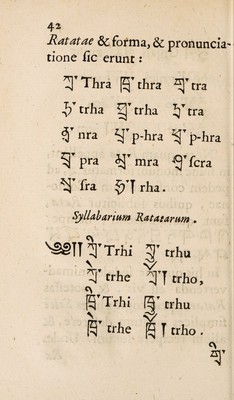 42
Ratatae & forma, & pronuncia-
tione ſic erunt :
ཀྲ Thra ཁྲ thra གྲ tra
ཏྲ trha ཐྲ trha དྲ tra
ནྲ nra པྲ p-hra ཕྲ p-hra
བྲ pra མྲ mra ཤྲ ſcra
སྲ ſra ཧྲ། rha .
Syllabarium Ratatarum .
༄༅།། ཀྲི Trhi ཀྲུ trhu
ཀྲེ trhe ཀྲོ། trho,
ཁྲི Trhi ཁྲུ trhu
ཁྲེ trhe ཁྲོ། trho .
གྲི